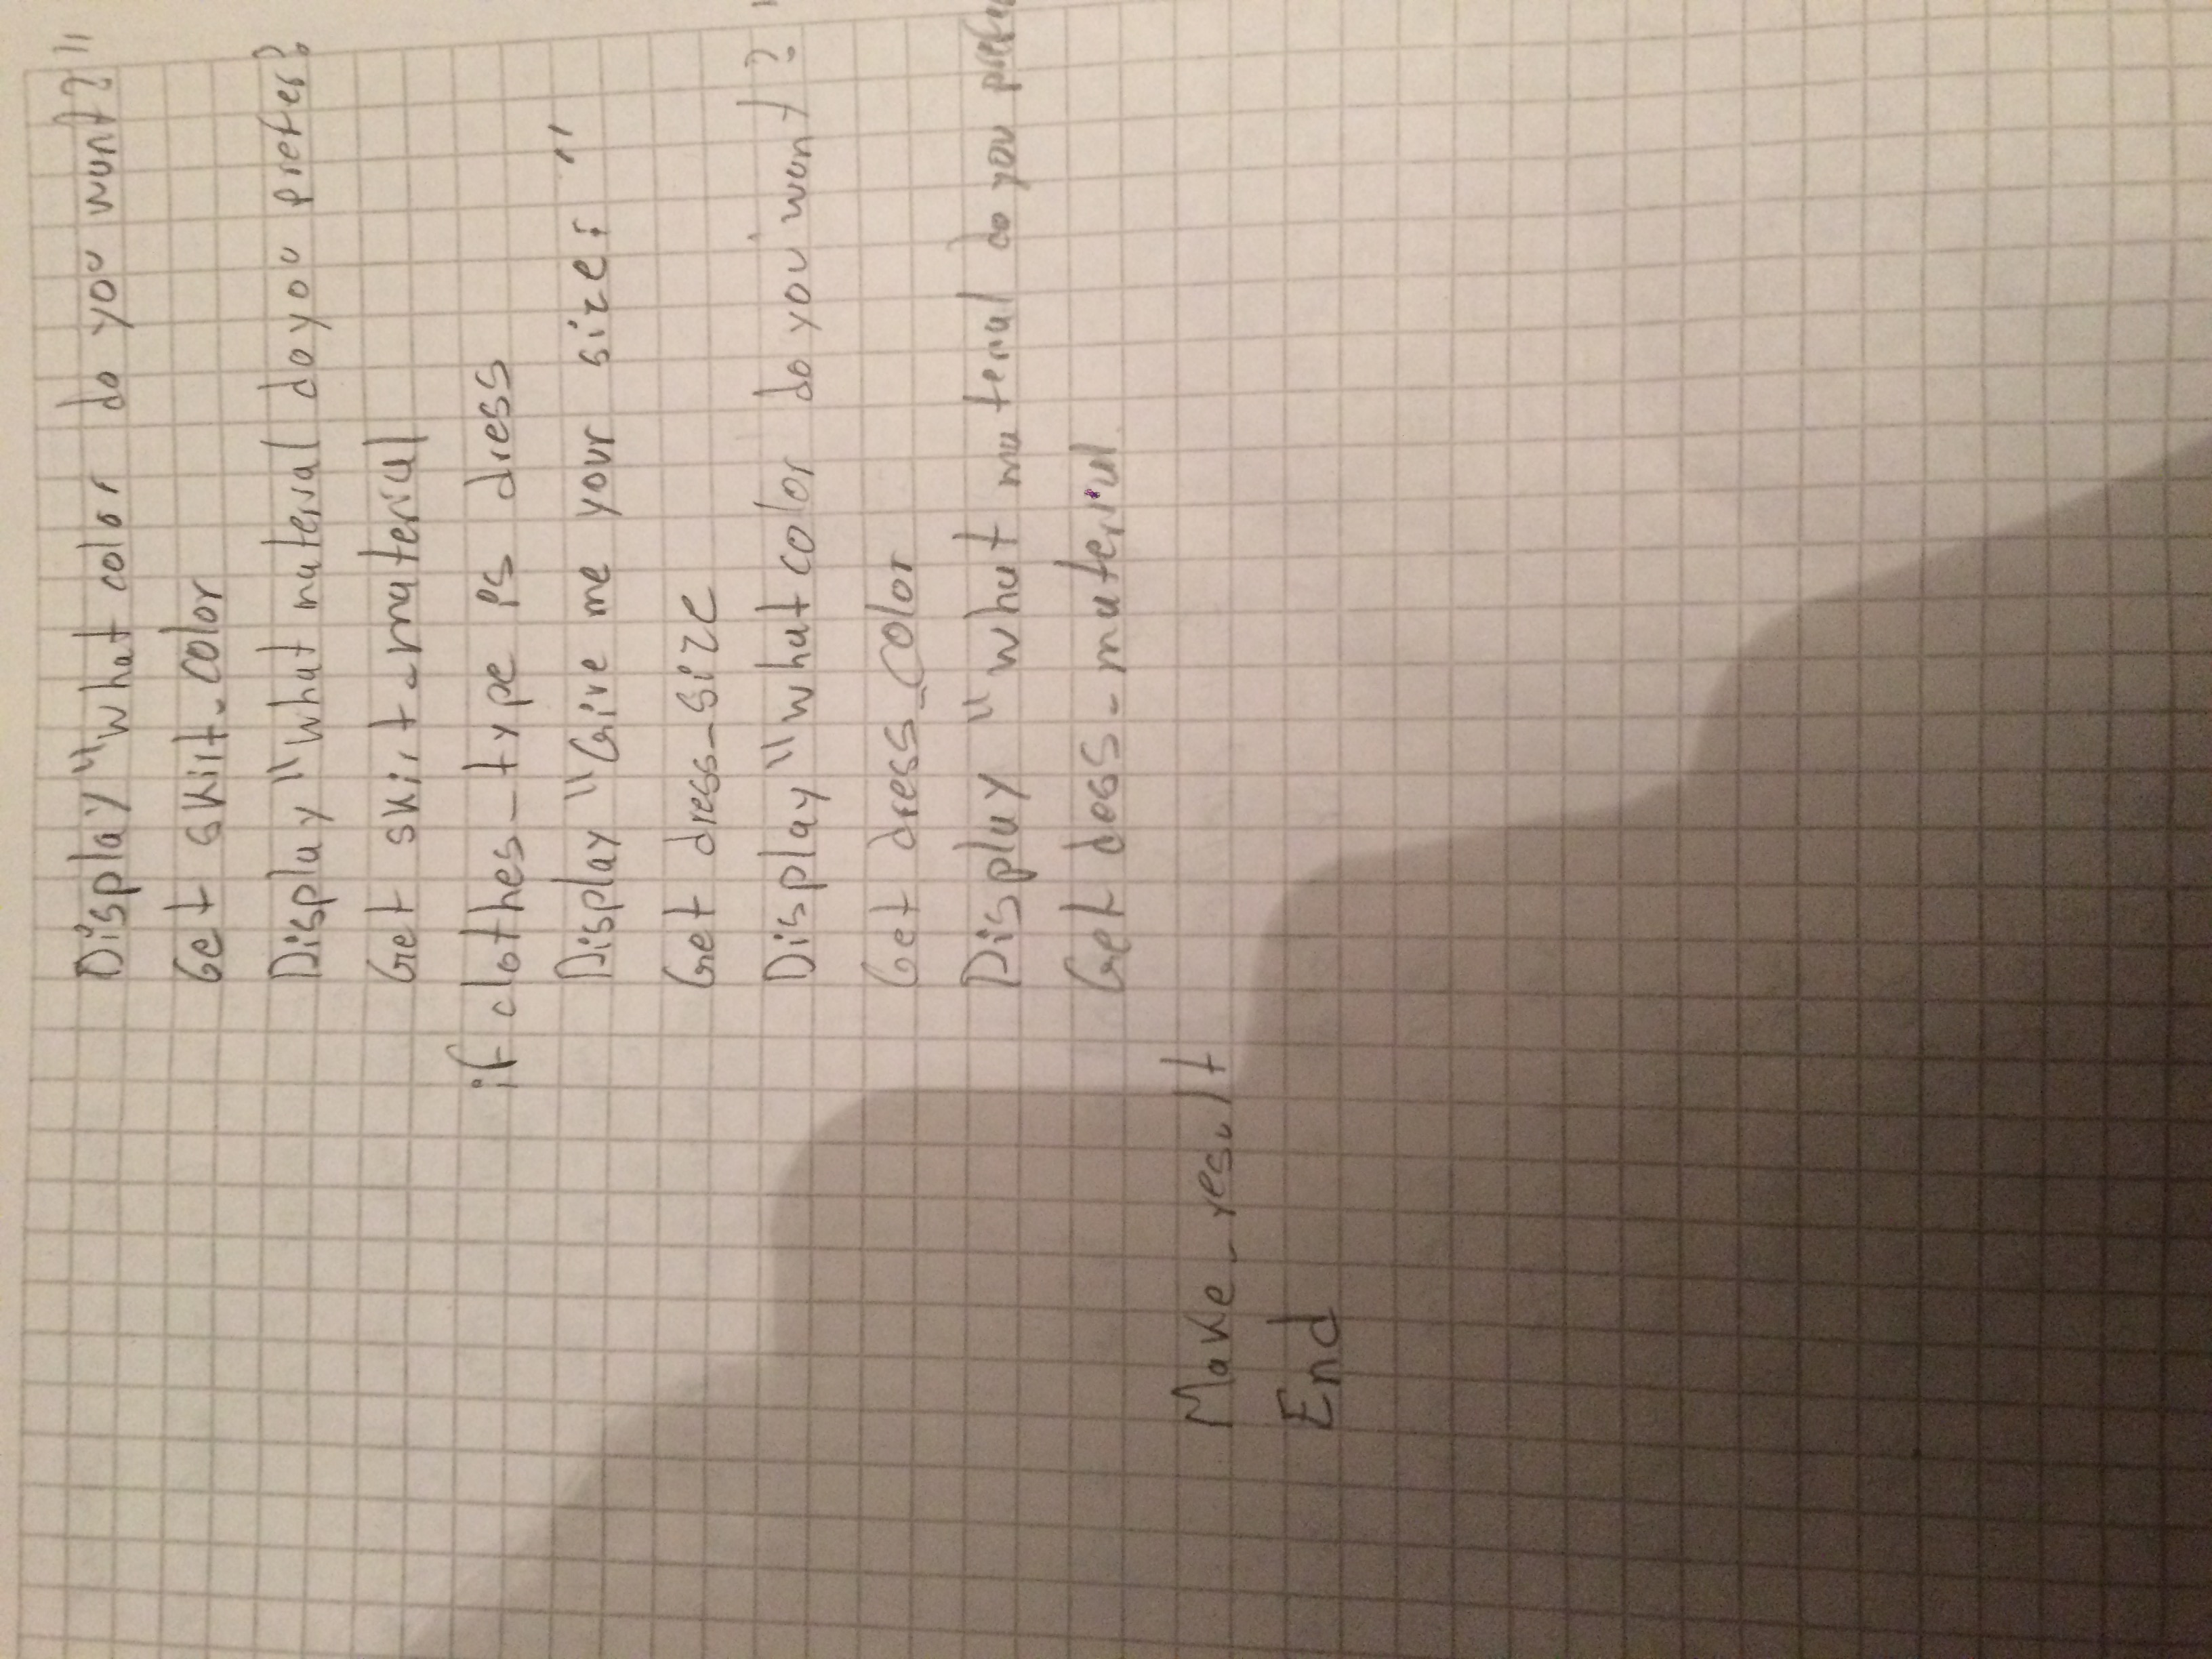 Display "what color do you want?"
Get skirt_color
Display "what material do you prefer?
Get skirt_material
if clothes_type is dress
Display "Give me your size: "
Get dress_size
Display "what color do you want?
Get dress_color
Display "what material do you prefer
Get dess_material
Make_result
End